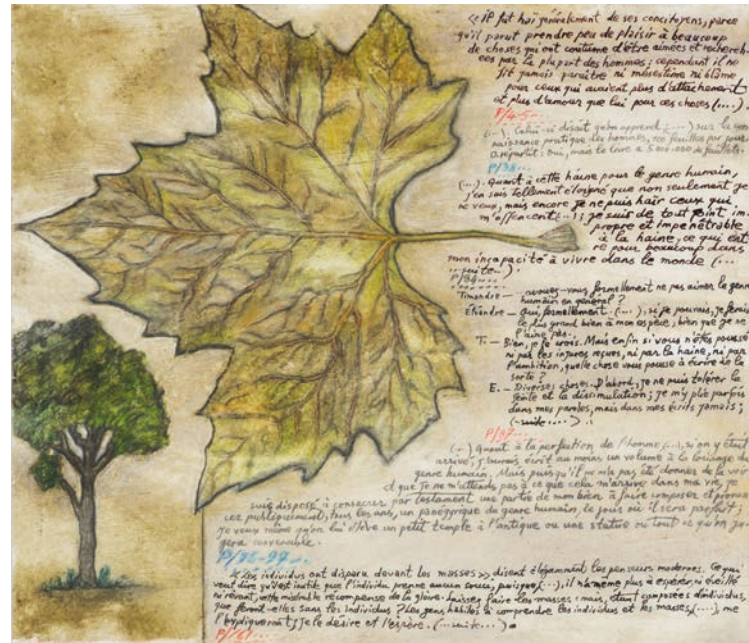 << Il fut haï généralement de ses concitoyens, parce
qu'il parut prendre peu de plaisir à beaucoup
de choses qui ont coutume d'être aimées et recherch-
ées par la plupart des hommes ; cependant il ne
fit jamais paraître ni mésestime ni blâme
pour ceux qui avaient plus d'attachement
et plus d'amour que lui pour ces choses (....).
P/45...
(...). Celui-ci disait qu'on apprend (....) sur la
naissance pratique des hommes, feuilles par jour
répartit : oui, mais le livre a 5.000.000 de feuillets.
P/38...
(...). Quant à cette haine pour le genre humain,
j'en suis tellement éloigné que non seulement je
ne veux, mais encore je ne puis haïr ceux qui
m'offencent (...) ; je suis de tout point im
propre et impénétrable
à la haine, ce qui est
re pour beaucoup dans
mon incapacité à vivre dans le monde (...
...suite...).
Timandre — avouez-vous formellement ne pas aimer le genre
humain en général ?
Eléandre — Oui, formellement. (....), si je pouvais, je ferais
le plus grand bien à mon espèce, bien que je ne
l'aime pas.
T. — Bien, je le crois. Mais enfin si vous n'êtes poussé
ni par les injures reçues, ni par la haine, ni par
l'ambition, quelle chose vous pousse à écrire de la
sorte ?
E. — Diverses choses. D'abord, je ne puis tolérer la
feinte et la dissimulation ; je m'y plie parfois
dans mes paroles, mais dans mes écrits jamais ;
(-suite....)
P/37...
(-) quant à la perfection de l'homme (...), si on y était
arrivé, j'aurais écrit au moins un volume à la louange du
genre humain. Mais puisqu'il ne m'a pas été donner de la voir
et que je ne m'attends pas à ce que cela m'arrive dans ma vie, je
suis disposé à consacrer par testament une partie de mon bien à faire composer et pronon
cer publiquement, tous les ans, un panégyrique du genre humain, le jour où il sera parfait ;
je veux même qu'on lui élève un petit temple à l'antique ou une statue ou tout ce qu'on ju
gera convenable.
<< Les individus ont disparu devant les masses >> disent élégamment les penseurs modernes. Ce qui
veut dire qu'il est inutile que l'individu prenne aucun souci, puisque (...), il n'a même plus à espérer, ni éveillé
ni rêvant, cette misérable récompense de la gloire. Laissez faire les masses ; mais, étant composées d'individus,
que feront-elles sans les individus ? Les gens habiles à comprendre les individus et les masses (....), me
l'expliqueront ; je le désire et l'espère. (...suite...).